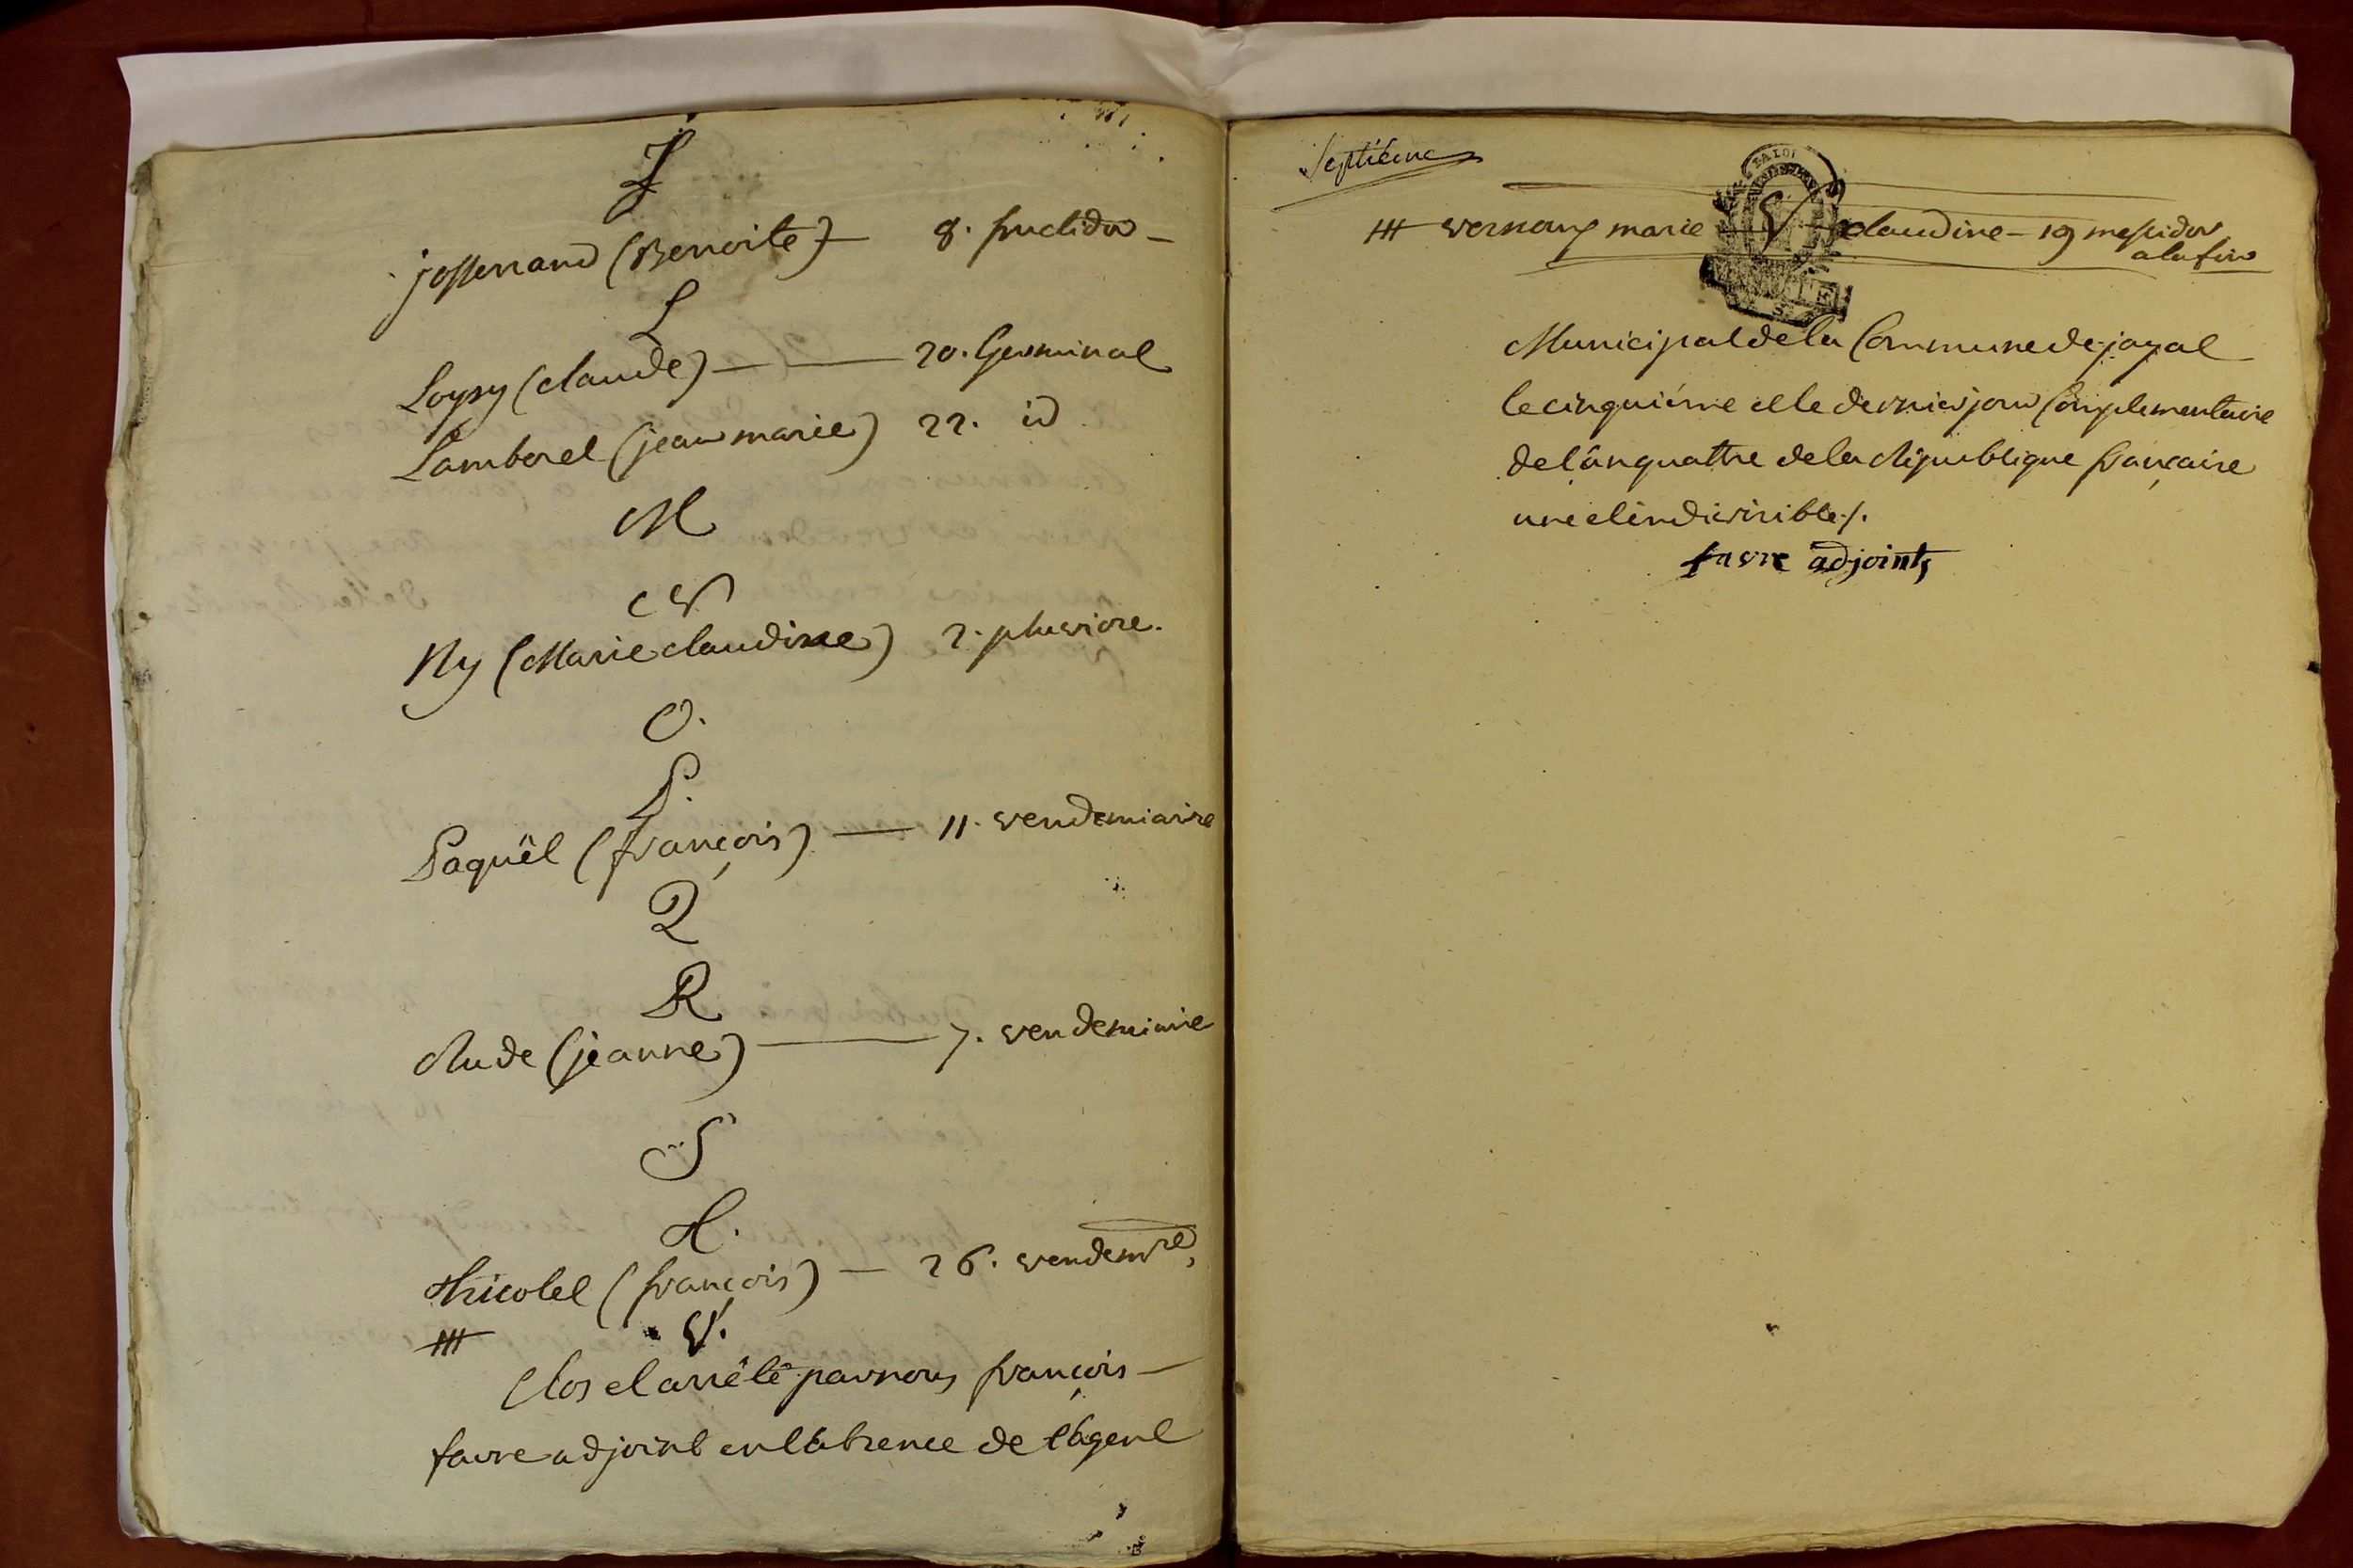 J
josserand (Benoite) — 8. fructidor —
L
Loysy (claude) — — 20. Germinal
Lamberel (jean marie) 22. id
M
N
Ny (Marie claudine) 2. pluviore.
O.
P.
Paquël (françois) — 11. vendemiaire
Q
R
Rude (jeanne) — 7. vendemiaire
S
T.
thicolel (françois) — 26. vendemre
V.
Clos et arrêté par nous françois —
favre adjoint en l'absence de l'agent
Septiéme
vernoux marie V claudine — 19 messidor
a la fin
Municipal de la Commune de jayat
le cinquiéme et le dernier jour Complementaire
de l'an quattre de la République francaise
une et indivisible /.
favre adjoint